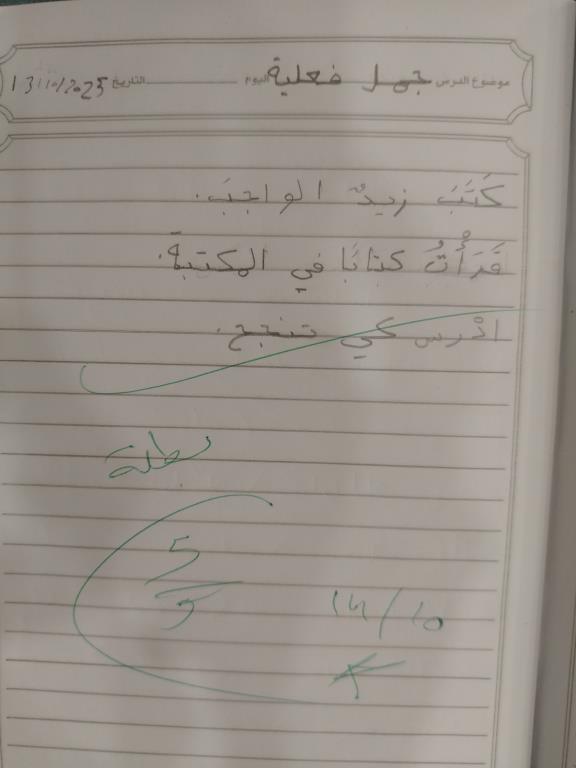 موضوع الدرس جمل فعلية اليوم التاريخ 13/10/2025
كَتَبَ زيدٌ الواجبَ.
قَرَأْتُ كتابًا في المكتبةَ.
ادْرس كي تنجح.
بطلة
5/5
14/10